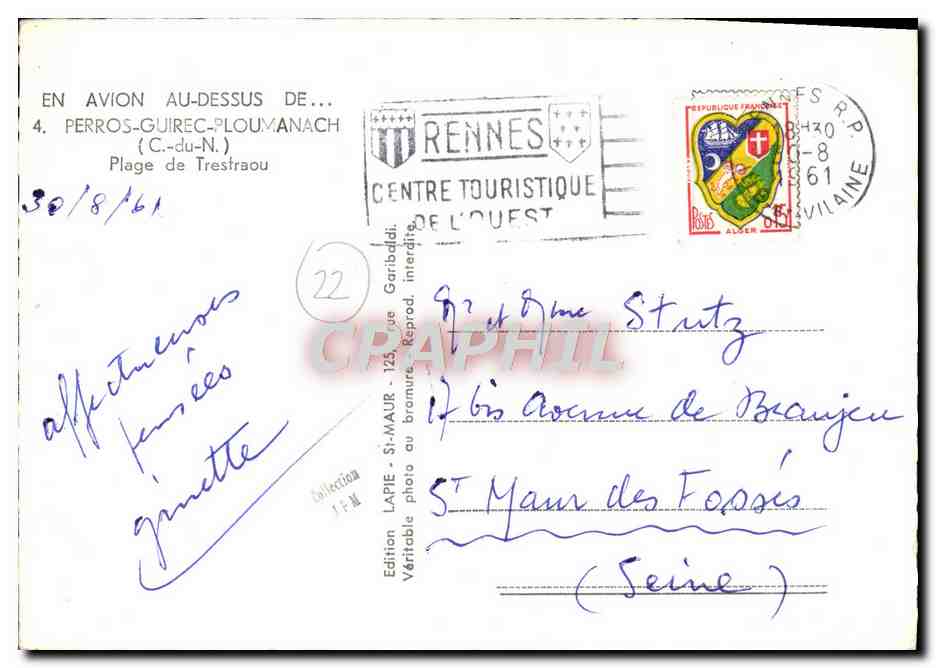 EN AVION AU-DESSUS DE...
4. PERROS-GUIREC-PLOUMANACH
(C.-du-N.)
Plage de Trestraou
30/8/61
RENNES
CENTRE TOURISTIQUE
DE L'OUEST
REPUBLIQUE FRANÇAISE
POSTES
ALGER
RENNES R.P.
18H30
-8
1961
VILAINE
22
affectueuses
pensées
ginette
Collection
Edition LAPIE - St-MAUR - 125, rue Garibaldi.
Véritable photo au bromure. Reprod. interdite.
CPAPHIL
Mr et Mme Stutz
17 bis Avenue de Beaujeu
St Maur des Fossés
(Seine)